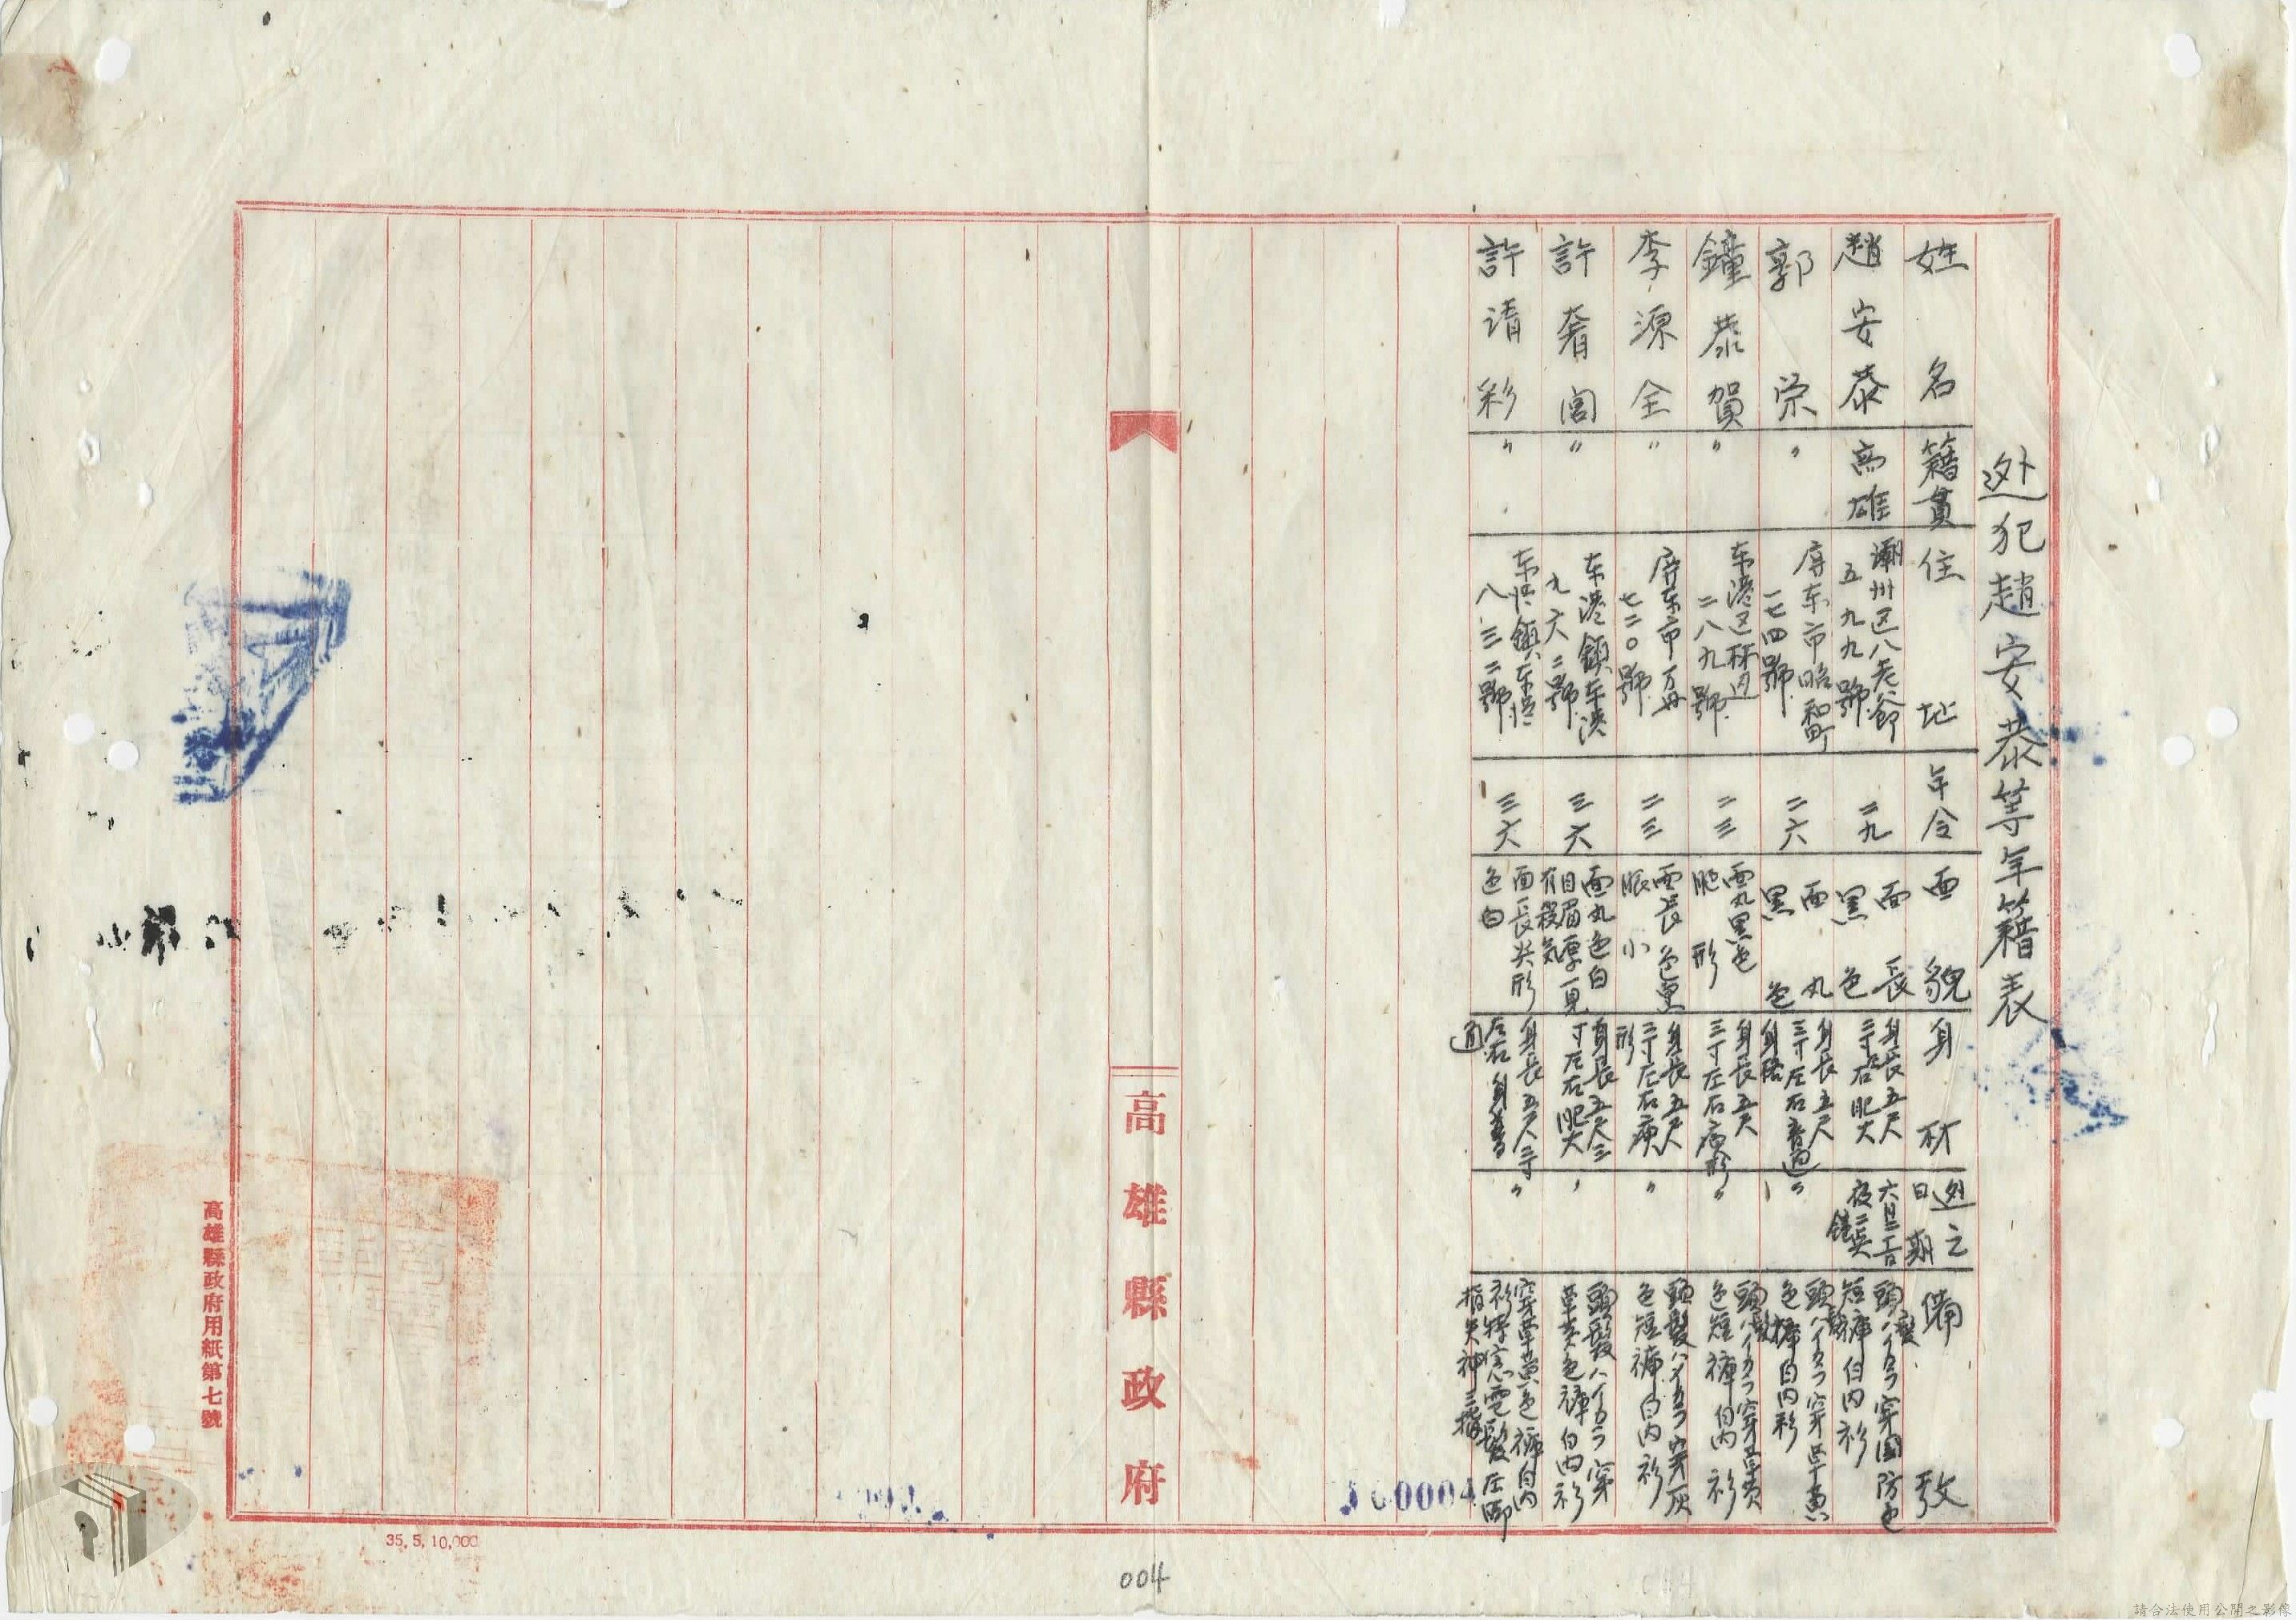 迯犯趙安泰等年籍表
姓名 籍貫 住址 年令 面貌 身材 迯之日期 備攷
趙安泰 高雄 潮州区八老爺五九九號 二九 面長黑色 身長五尺三寸左右肥大 六月二 夜二 鐘 頭髮ハイカラ穿國防色短褲白内衫
郭荣 〃 屏东市昭和町一七四號 二六 面丸黑色 身長五尺三寸左右普通身格 〃 頭髮ハイカラ穿草黄色褲白内衫
鐘恭賀 〃 东港区林边二八九號 二三 面丸黑色肥形 身長五尺三寸左右 形 〃 頭髮ハイカラ穿草黄色短褲白内衫
李源全 〃 屏东市万丹七二〇號 二三 面長色黑眼小 身長五尺二寸左右 形 〃 頭髮ハイカラ穿灰色短褲白内衫
許奢 〃 东港鎮东港九六二號 三六 面丸色白目眉厚一見有殺気 身長五尺三寸左右肥大 〃 頭髮ハイカラ穿草黄色褲白内衫
許清彩 〃 东港鎮东港八三二號 三六 面長尖形色白 身長五尺三寸左右身普通 〃 穿草黄色褲白内衫 電髮左脚指失神三指
高雄縣政府
高雄縣政府用紙第七號
35, 5, 10,000
00004
004
請合法使用公開之影像